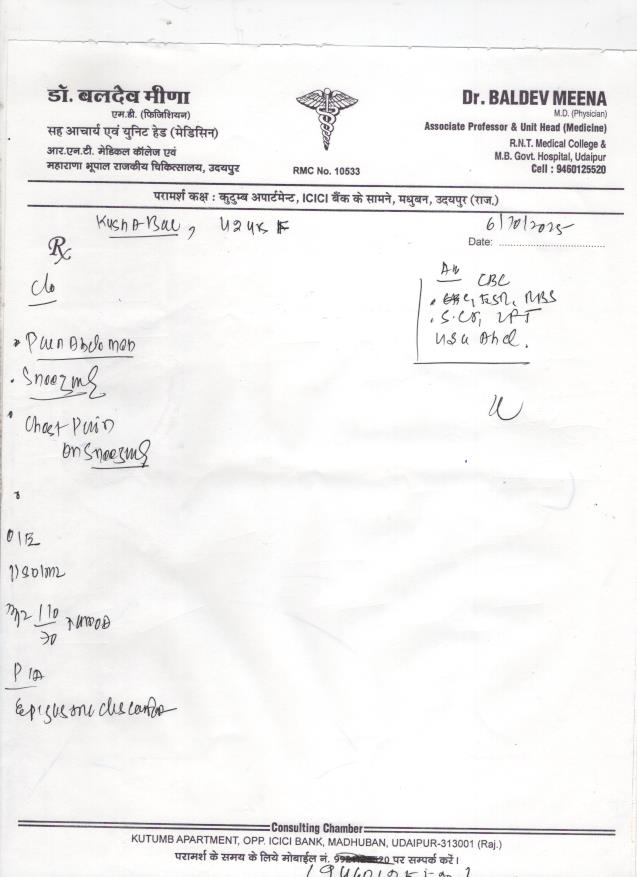 डॉ. बलदेव मीणा
एम.डी. (फिजिशियन)
सह आचार्य एवं युनिट हेड (मेडिसिन)
आर.एन.टी. मेडिकल कॉलेज एवं
महाराणा भूपाल राजकीय चिकित्सालय, उदयपुर
RMC No. 10533
Dr. BALDEV MEENA
M.D. (Physician)
Associate Professor & Unit Head (Medicine)
R.N.T. Medical College &
M.B. Govt. Hospital, Udaipur
Cell : 9460125520
परामर्श कक्ष : कुटुम्ब अपार्टमेन्ट, ICICI बैंक के सामने, मधुबन, उदयपुर (राज.)
6/10/2025
Date:
Rx
c/o
CBC
ESR, RBS
Pain Abdomen
Sneezing
Chest Pain
on Sneezing
O/E
110
70
P/A
Consulting Chamber
KUTUMB APARTMENT, OPP. ICICI BANK, MADHUBAN, UDAIPUR-313001 (Raj.)
परामर्श के समय के लिये मोबाईल नं. पर सम्पर्क करें।